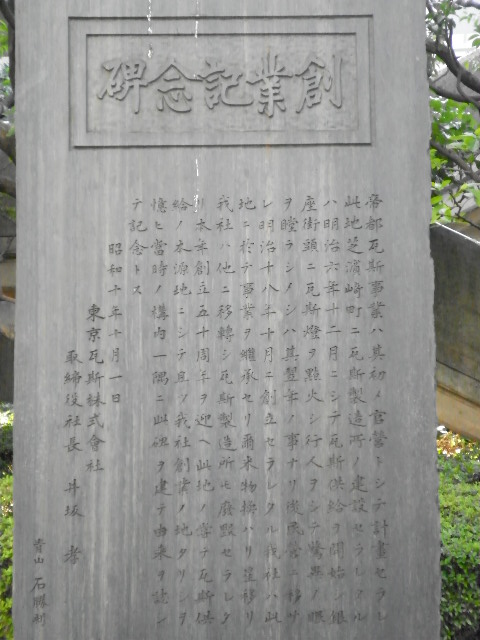 創業記念碑
帝都瓦斯事業ハ其初メ官營トシテ計畫セラレ
此地芝濱崎町ニ瓦斯製造所ノ建設セラレタル
ハ明治六年十二月ニシテ瓦斯供給ヲ開始シ銀
座街頭ニ瓦斯燈ヲ點火シ行人ヲシテ驚異ノ眼
ヲ瞠ラシメシハ其翌年ノ事ナリ後民營ニ移サ
レ明治十八年十月ニ創立セラレタル我社ハ此
地ニ於テ事業ヲ繼承セリ爾来物換ハリ星移リ
我社ハ他ニ移轉シ瓦斯製造所モ廢毀セラレタ
リ本年創立五十周年ヲ迎ヘ此地ノ嘗テ瓦斯供
給ノ本源地ニシテ且ツ我社創業ノ地タリシヲ
憶ヒ當時ノ構内一隅ニ此碑ヲ建テ由来ヲ誌シ
テ記念トス
昭和十年十月一日
東京瓦斯株式會社
取締役社長 井坂 孝
青山 石勝刻